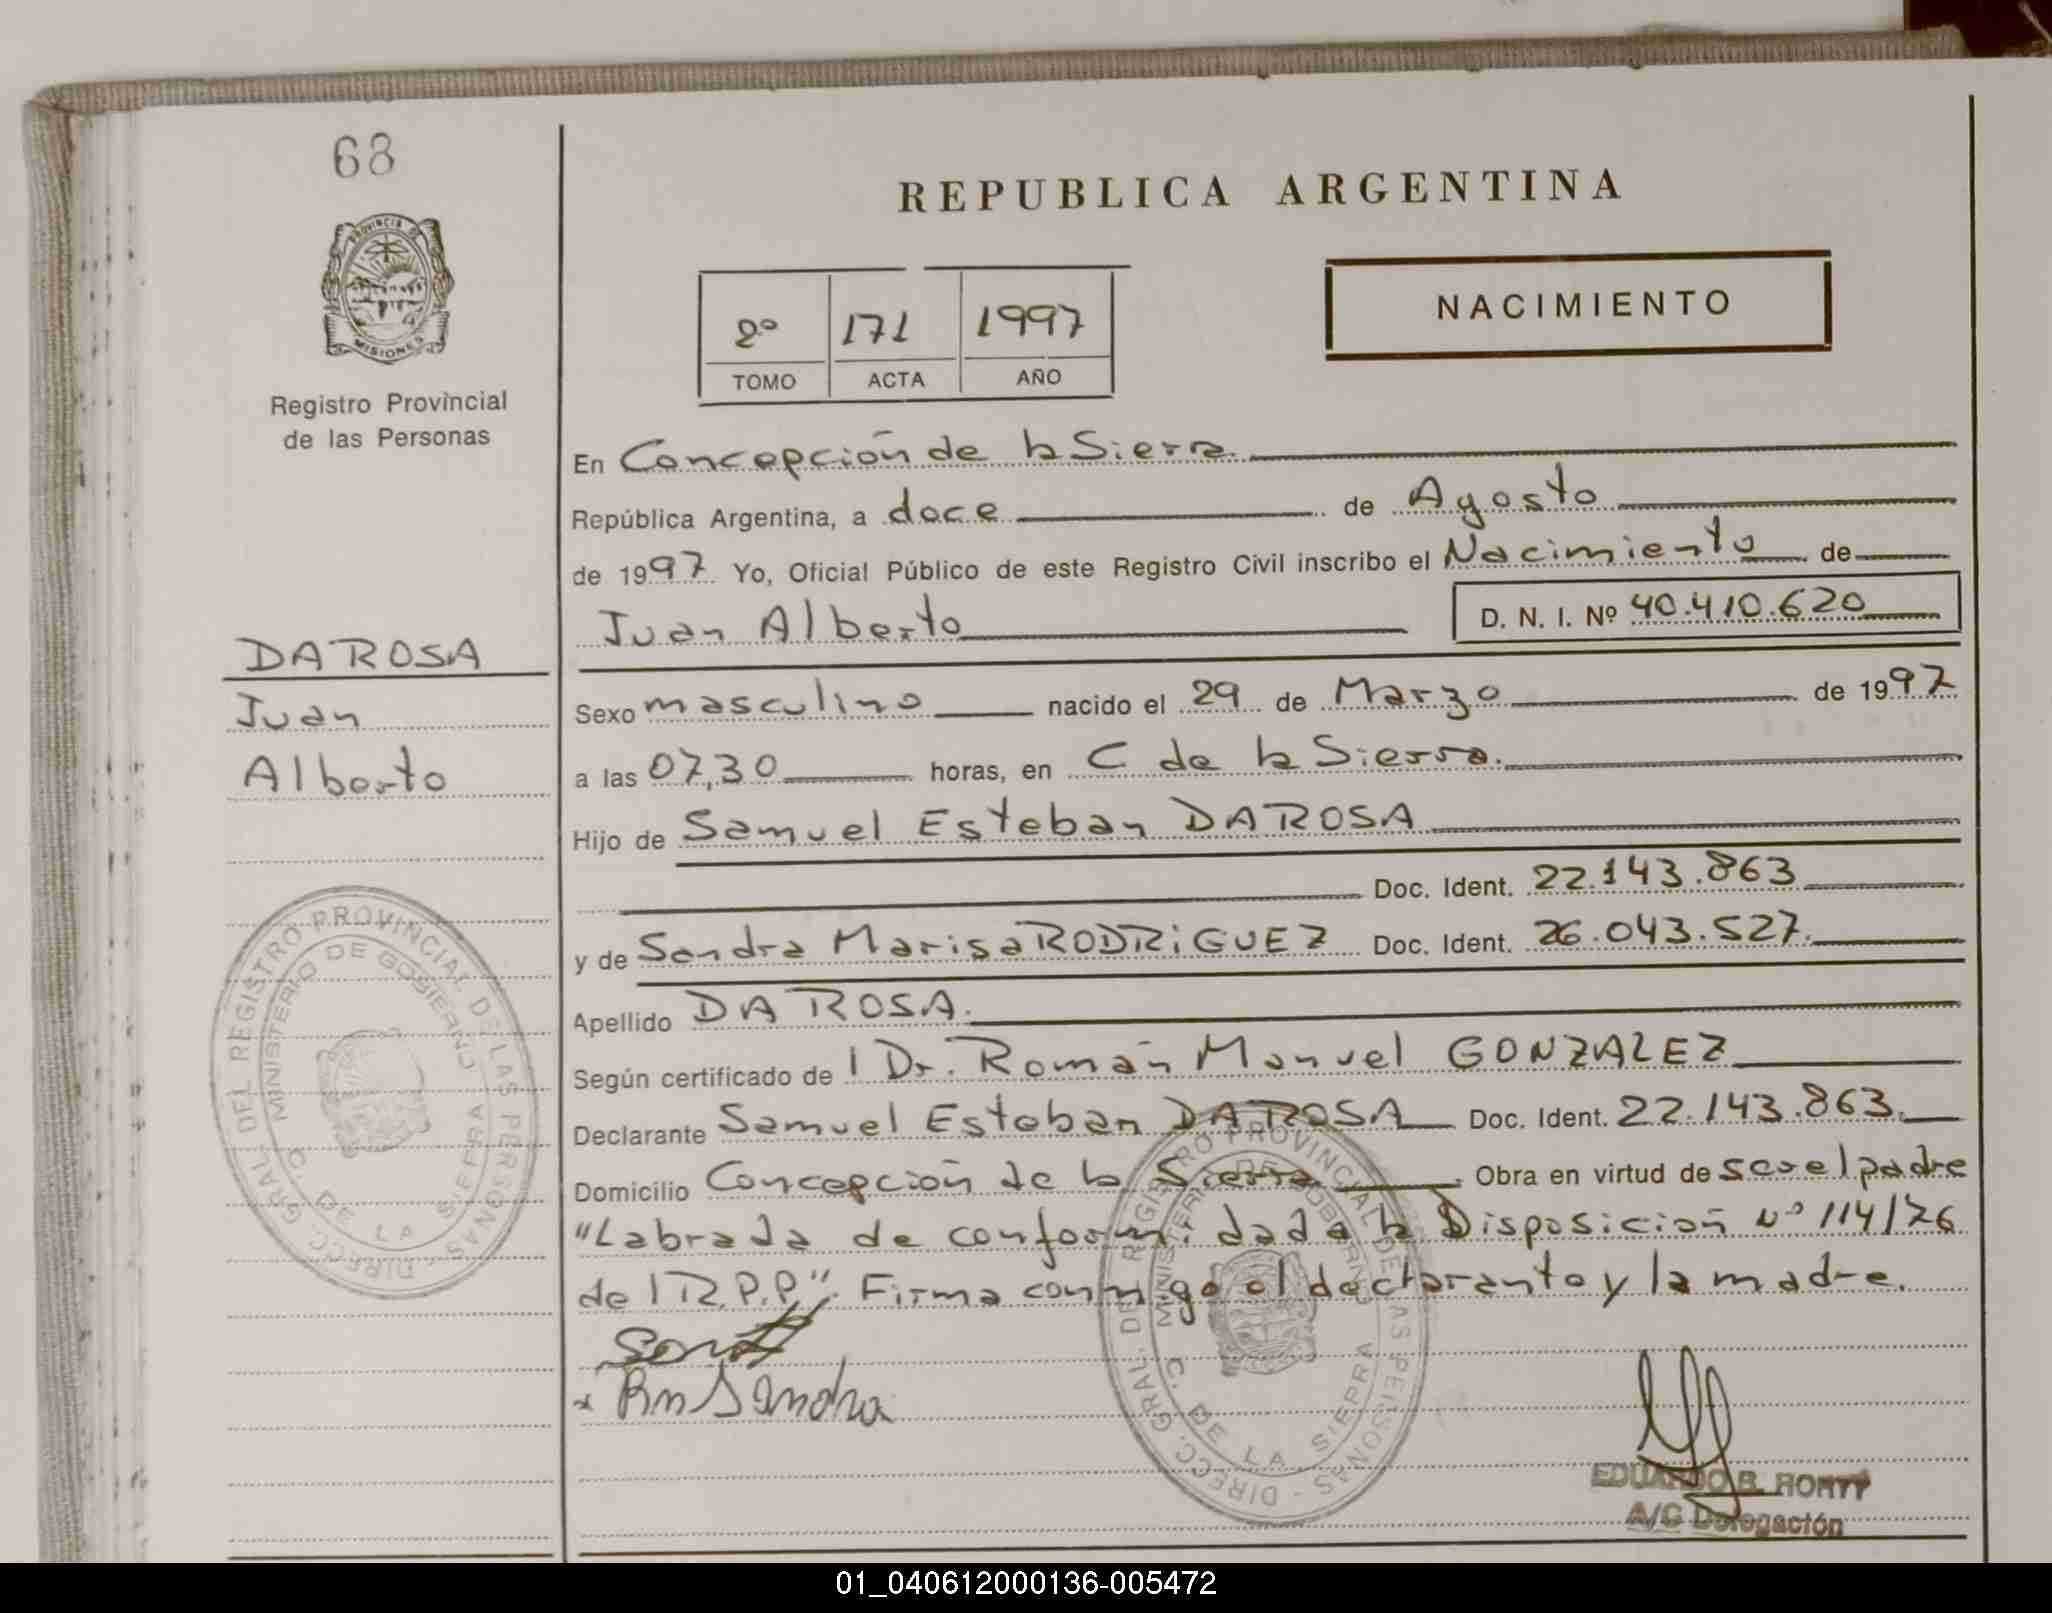 68
REPUBLICA ARGENTINA
PROVINCIA DE
MISIONES
Registro Provincial
de las Personas
2º 171 1997
TOMO ACTA AÑO
NACIMIENTO
En Concepción de la Sierra
República Argentina, a doce de Agosto
de 1997 Yo, Oficial Público de este Registro Civil inscribo el Nacimiento de
Juan Alberto D. N. I. Nº 40.410.620
DA ROSA
Juan
Alberto
Sexo masculino nacido el 29 de Marzo de 1997
a las 07,30 horas, en C de la Sierra.
Hijo de Samuel Esteban DA ROSA
Doc. Ident. 22.143.863
y de Sandra Marisa RODRiGUEZ Doc. Ident. 26.043.527.
Apellido DA ROSA.
Según certificado del Dr. Román Manuel GONZALEZ
Declarante Samuel Esteban DA ROSA Doc. Ident. 22.143.863.
Domicilio Concepción de la Sierra Obra en virtud de ser el padre
"Labrada de conformidad a la Disposición Nº 114/76
del R.P.P.". Firma conmigo el declarante y la madre.
DIRECC. GRAL. DEL REGISTRO PROVINCIAL DE LAS PERSONAS
MINISTERIO DE GOBIERNO
C. DE LA SIERRA
DIRECC. GRAL. DEL REGISTRO PROVINCIAL DE LAS PERSONAS
MINISTERIO DE GOBIERNO
C. DE LA SIERRA
Sandra
EDUARDO B.
A/C Delegación
01_040612000136-005472